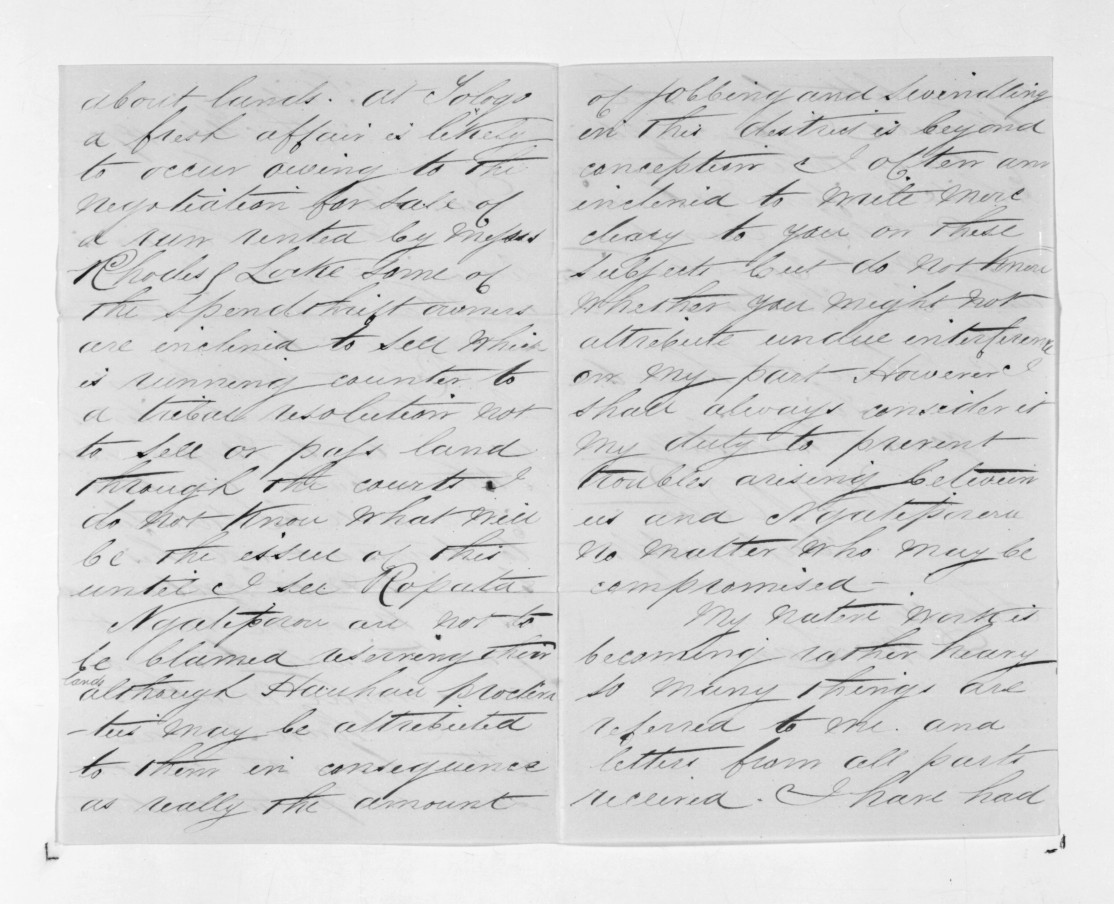 about lands. At Tologo
a fresh affair is likely
to occur owing to the
negotiation for sale of
a run rented by Messrs
Rhodes & Locke some of
the spendthrift owners
are inclined to sell which
is running counter to
a tribal resolution not
to sell or pass land
through the courts I
do not know what will
be the issue of this
until I see Ropata
Ngatiporou are not to
be blamed reserving their
lands
although Hauhau proclivi
-ties may be attributed
to them in consequence
as really the amount
of jobbing and swindling
in this district is beyond
conception & I often am
inclined to write more
to you on these
subjects but do not know
whether you might not
attribute undue interference
on my part However I
shall always consider it
my duty to prevent
troubles arising between
us and Ngatiporou
no matter who may be
compromised -
My native work is
becoming rather heavy
so many things are
referred to me. and
letters from all parts
received. I have had